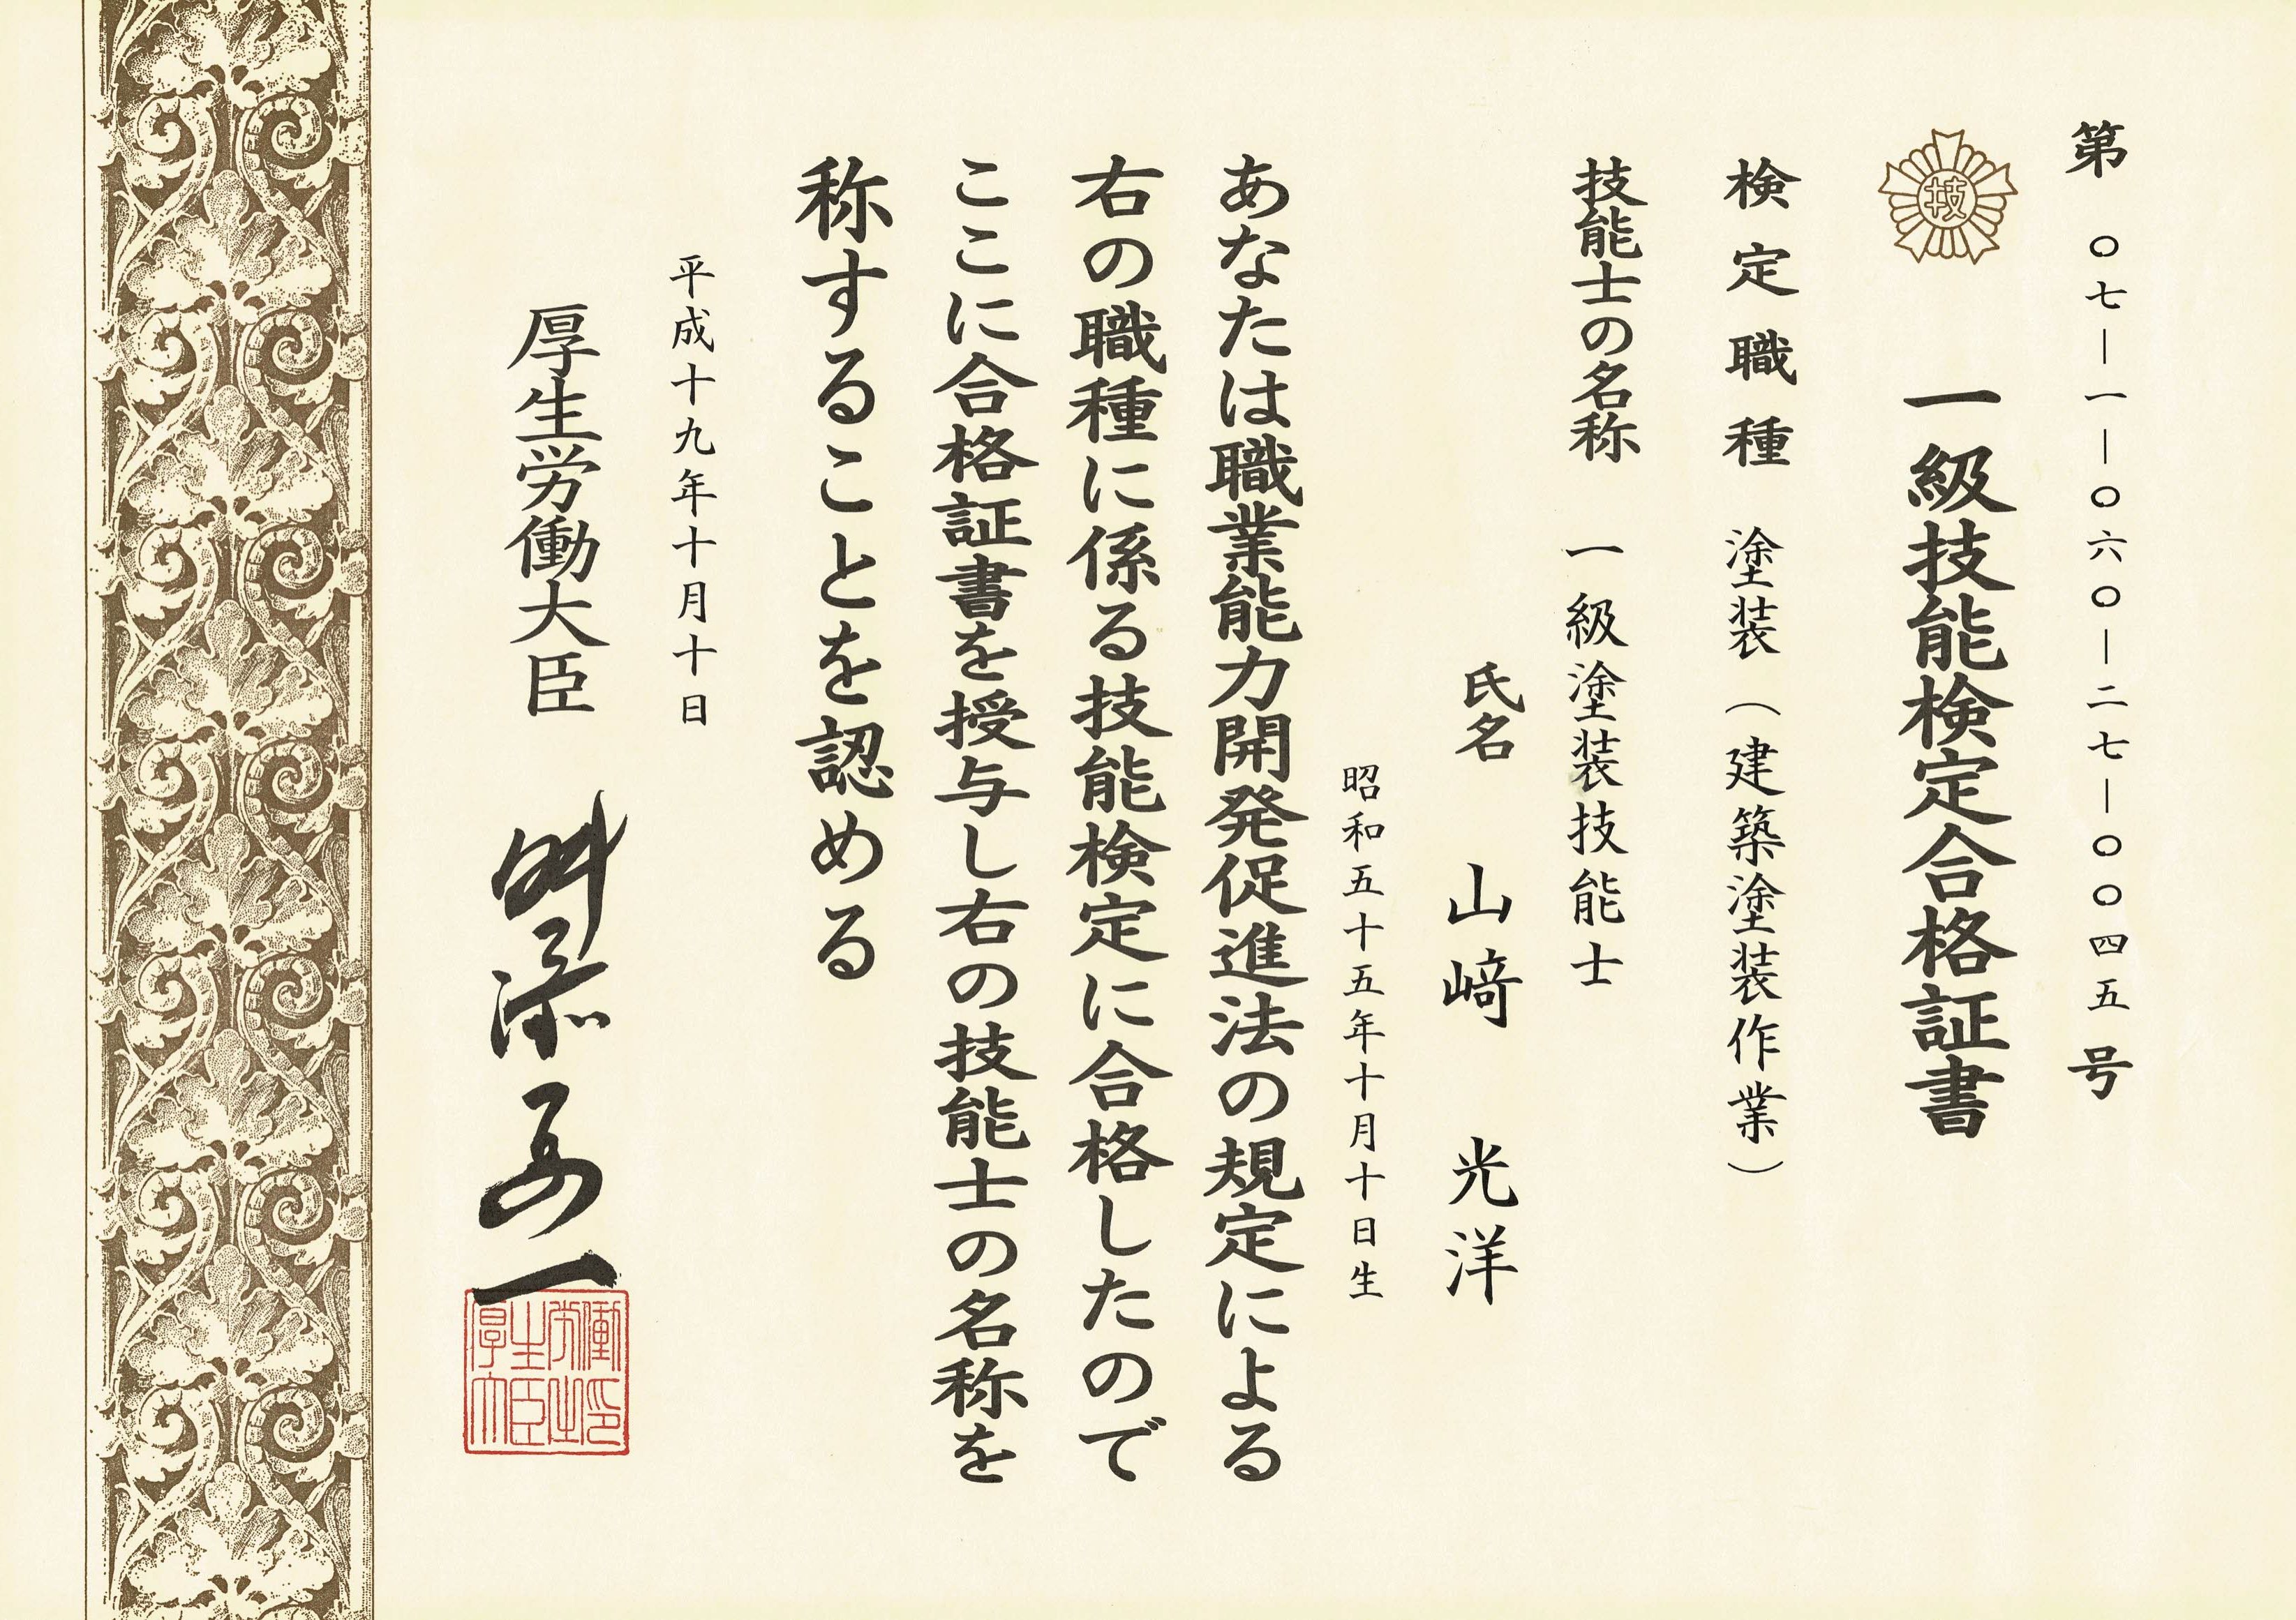 第 〇七―一―〇六〇―二七―〇〇四五 号
技
一級技能検定合格証書
検定職種 塗装（建築塗装作業）
技能士の名称 一級塗装技能士
氏名 山﨑 光洋
昭和五十五年十月十日生
あなたは職業能力開発促進法の規定による
右の職種に係る技能検定に合格したので
ここに合格証書を授与し右の技能士の名称を
称することを認める
平成十九年十月十日
厚生労働大臣 舛添要一